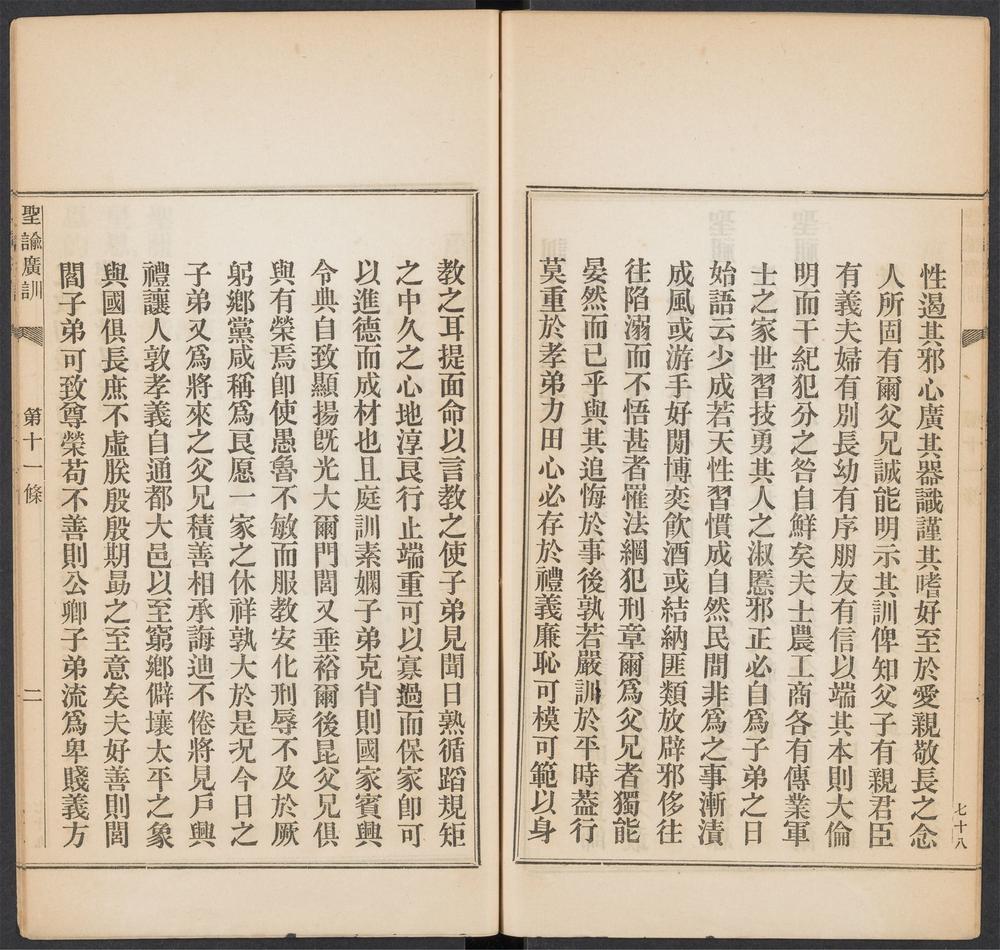 性遏其邪心廣其器識謹其嗜好至於愛親敬長之念
人所固有爾父兄誠能明示其訓俾知父子有親君臣
有義夫婦有別長幼有序朋友有信以端其本則大倫
明而干紀犯分之咎自鮮矣夫士農工商各有傳業軍
士之家世習技勇其人之淑慝邪正必自爲子弟之日
始語云少成若天性習慣成自然民間非爲之事漸漬
成風或游手好閒博奕飲酒或結納匪類放辟邪侈往
往陷溺而不悟甚者罹法網犯刑章爾爲父兄者獨能
晏然而已乎與其追悔於事後孰若嚴訓於平時葢行
莫重於孝弟力田心必存於禮義廉恥可模可範以身
七十八
教之耳提面命以言教之使子弟見聞日熟循蹈規矩
之中久之心地淳良行止端重可以寡過而保家卽可
以進德而成材也且庭訓素嫻子弟克肖則國家賓興
令典自致顯揚旣光大爾門閭又垂裕爾後昆父兄俱
與有榮焉卽使愚魯不敏而服教安化刑辱不及於厥
躬鄉黨咸稱爲良愿一家之休祥孰大於是况今日之
子弟又爲將來之父兄積善相承誨迪不倦將見戶興
禮讓人敦孝義自通都大邑以至窮鄉僻壤太平之象
與國俱長庶不虛朕殷殷期勗之至意矣夫好善則閭
閻子弟可致尊榮苟不善則公卿子弟流爲卑賤義方
聖諭廣訓
第十一條
二